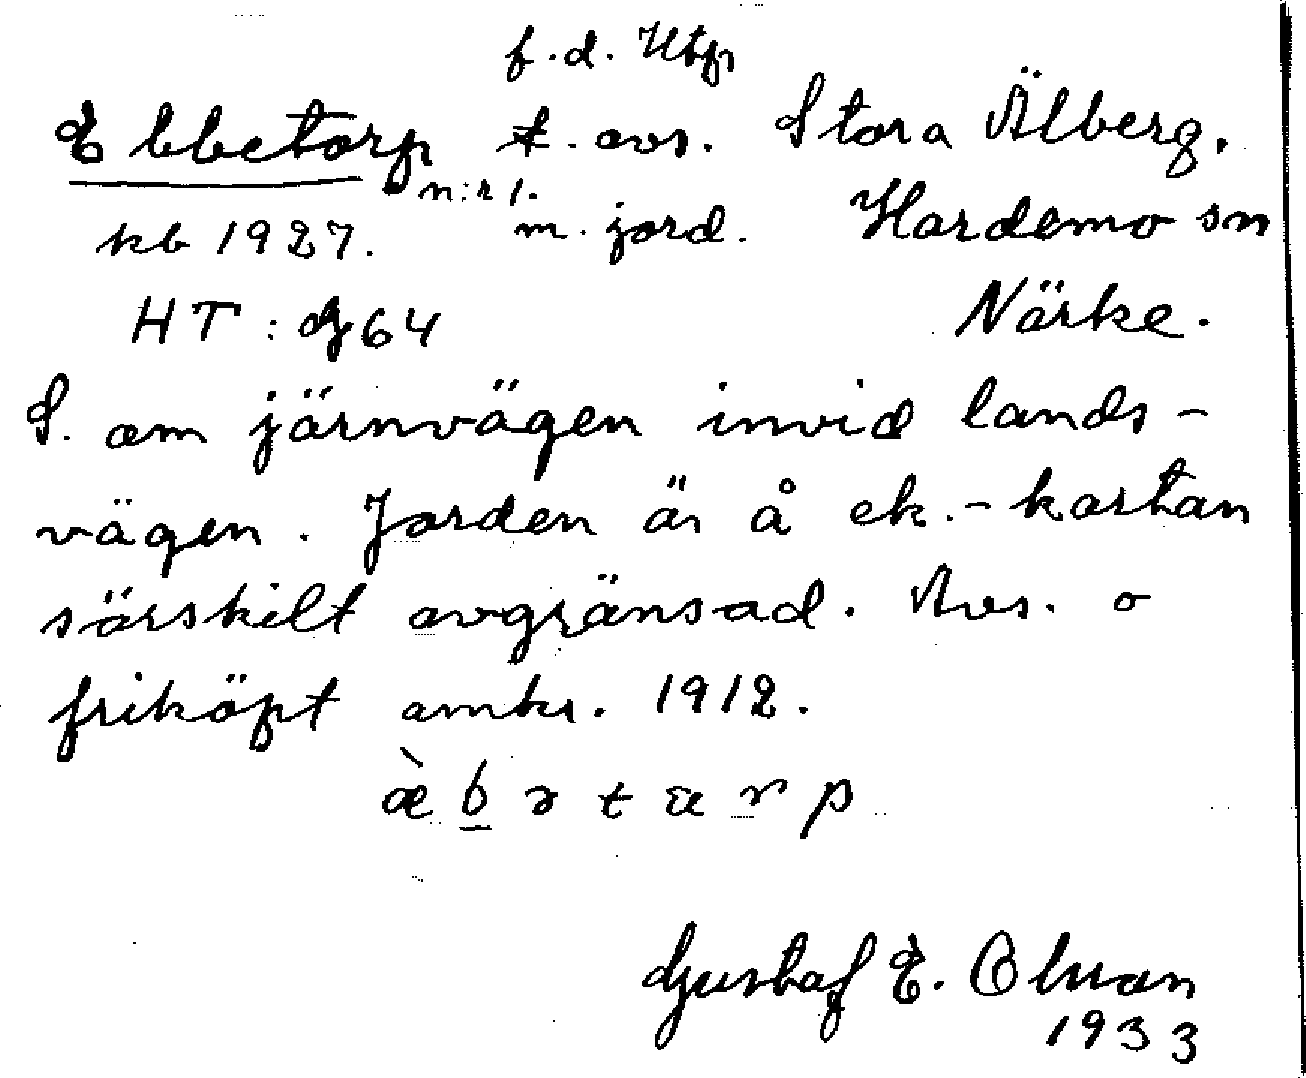 f.d. Utjo
Ebbetorp t. avs. Stora Älberg.
n:r 1.
kb 1927. m. jord. Hardemo sn
HT: g64 Närke.
S. om järnvägen invid lands-
vägen. Jorden är å ek.-kartan
särskilt avgränsad. Avs. o
friköpt omkr. 1912.
æ̀ b̲ ə t a r p
Gustaf E. Olsson
1933